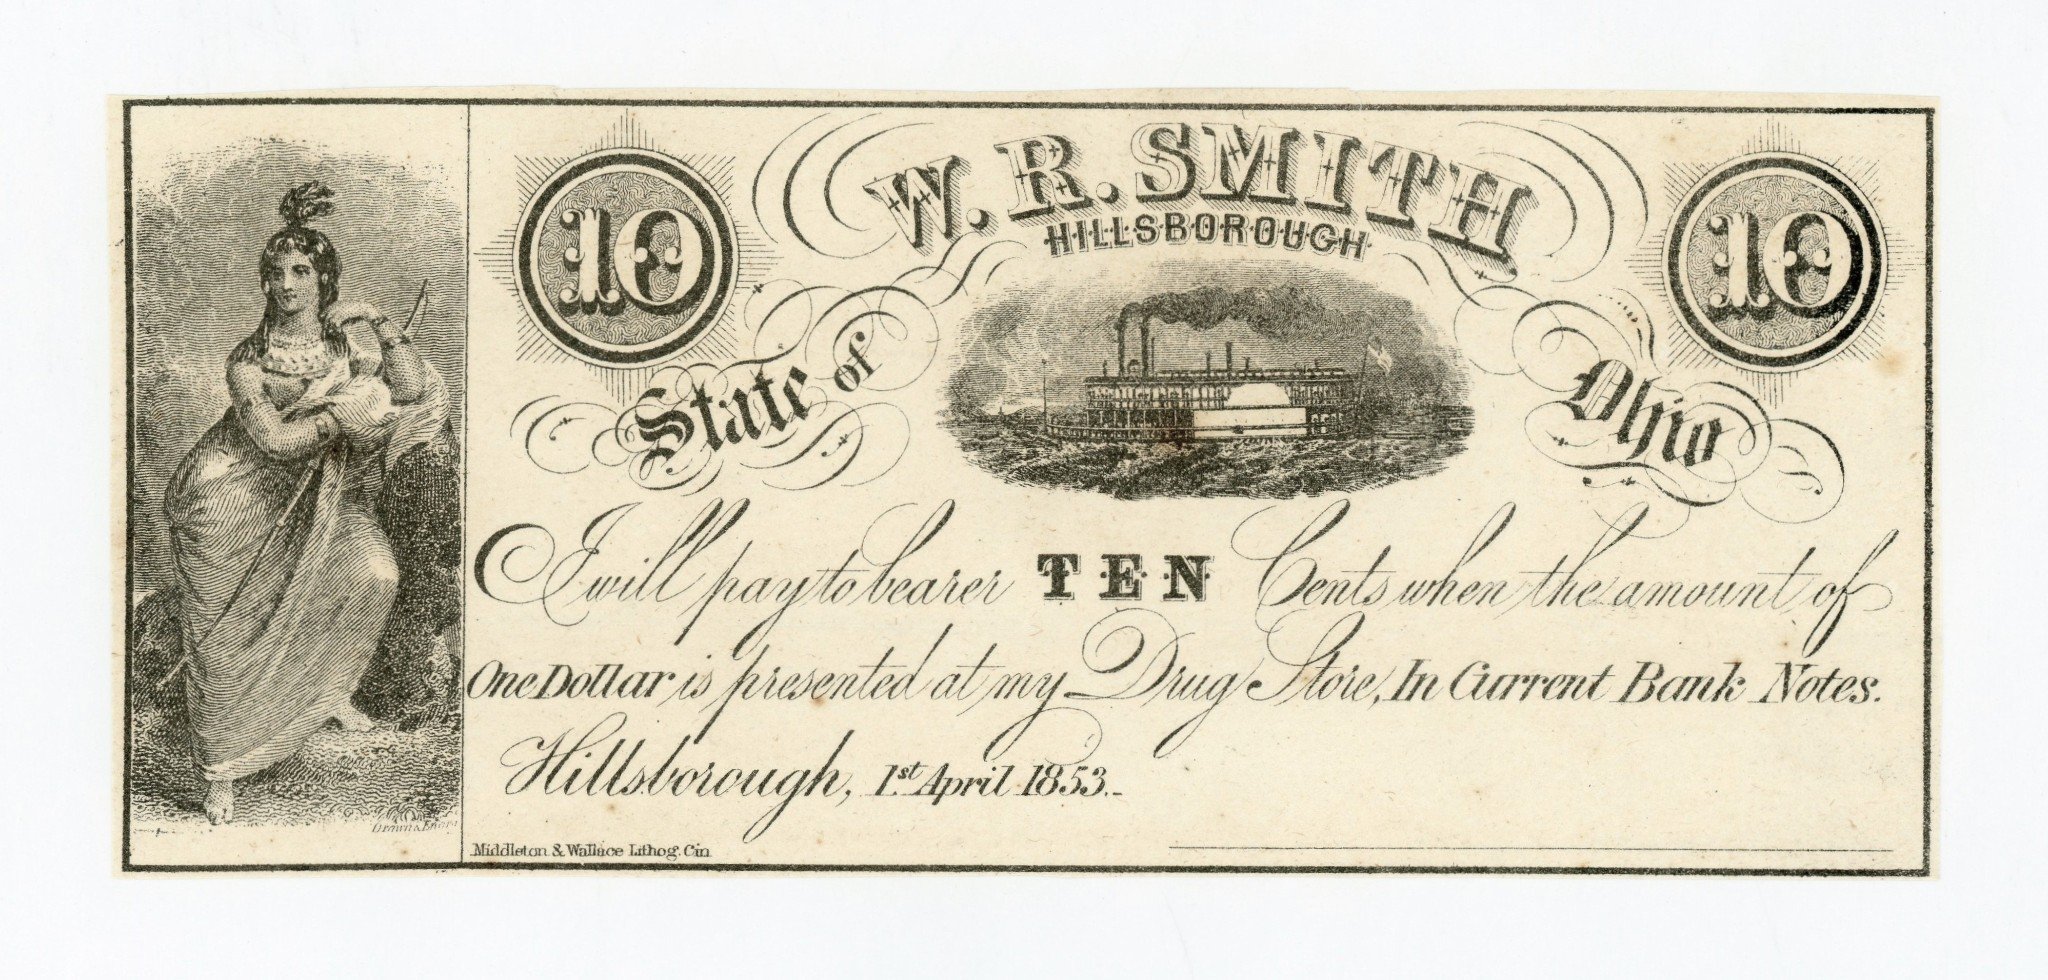 10
W. R. SMITH
10
HILLSBOROUGH
State of Ohio
I will pay to bearer TEN Cents when the amount of
One Dollar is presented at my Drug Store, In Current Bank Notes.
Hillsborough, 1st April 1853.
Drawn &
Middleton & Wallace Lithog. Cin.